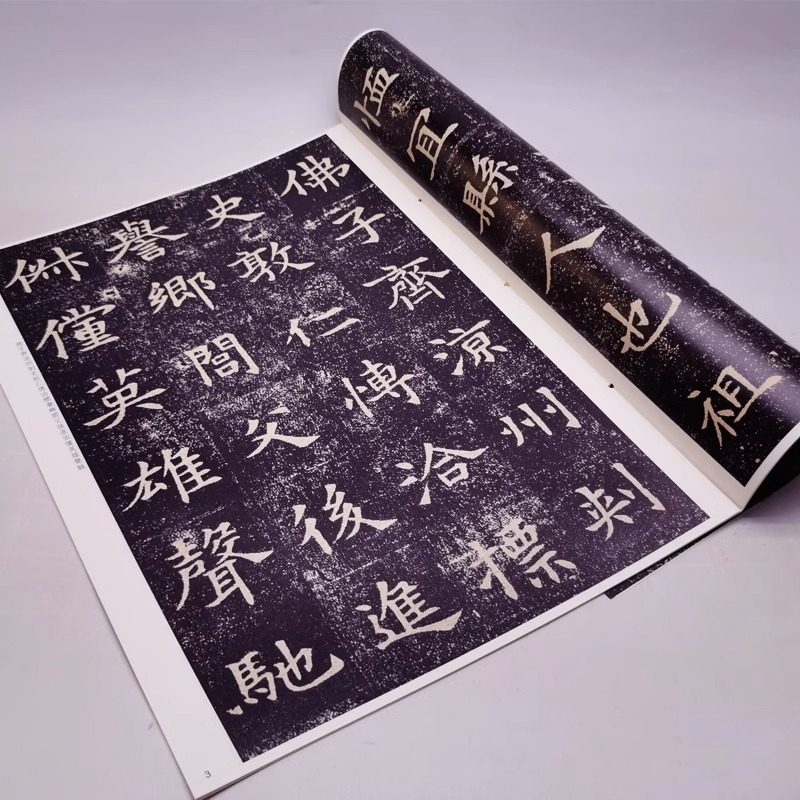 恤宜縣人也祖
佛子齊涼州刾
史敦仁愽洽標
譽鄉閭父後進
俶儻英雄聲馳
3